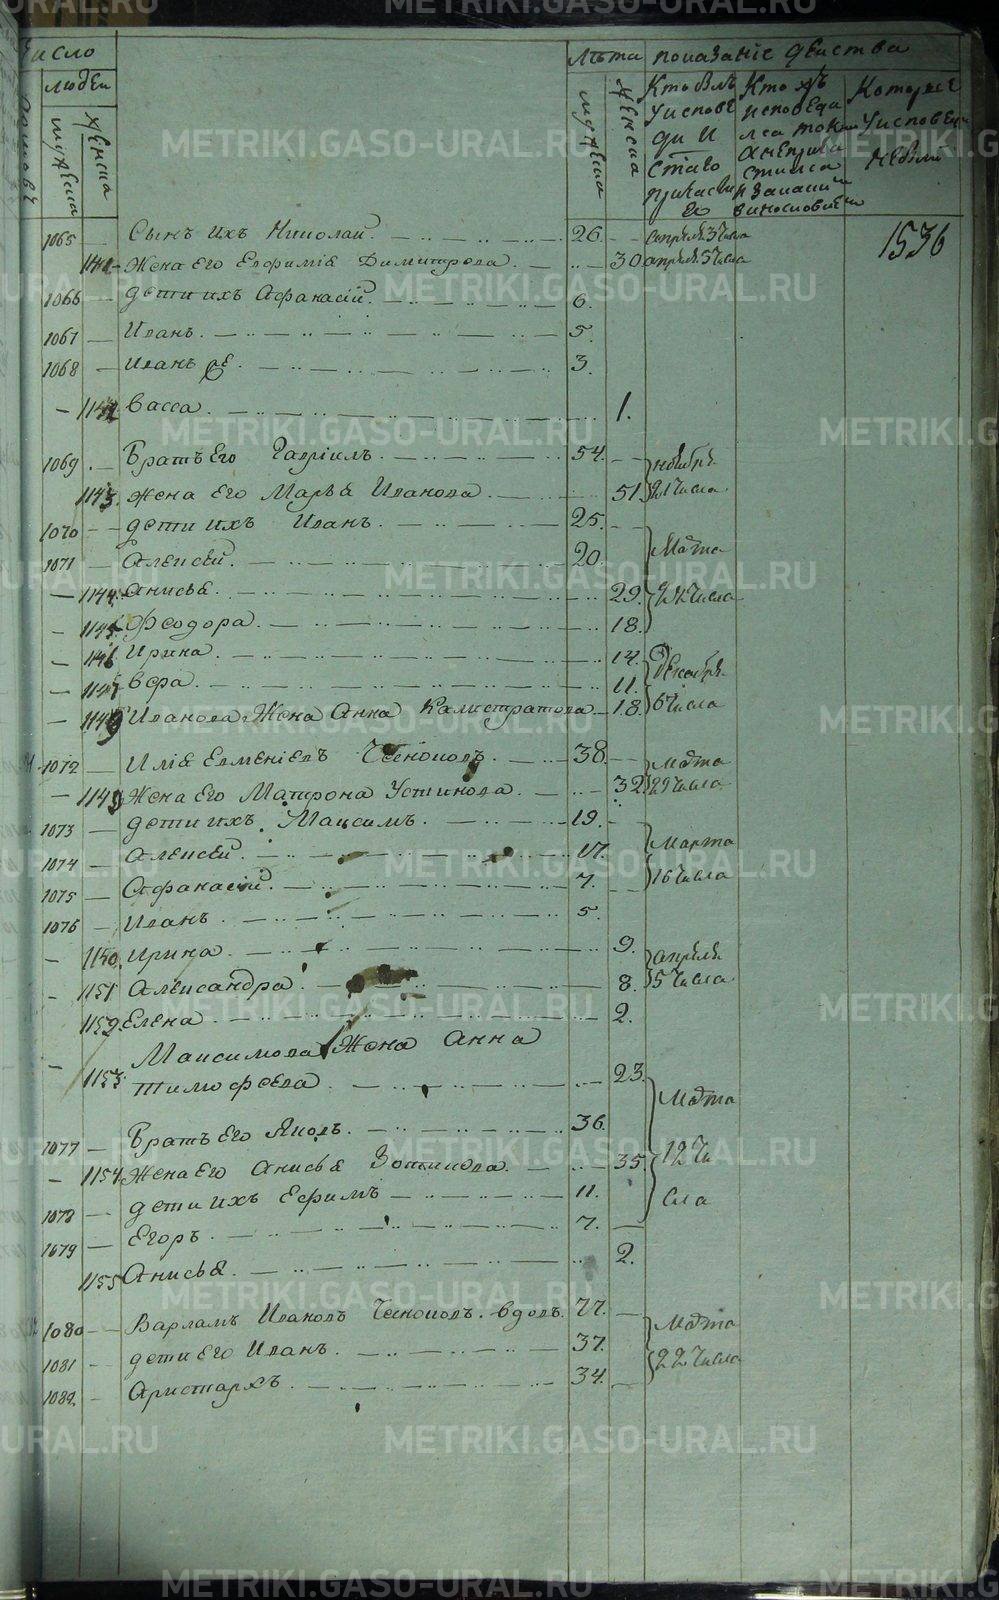 число
людей
мужеска
женска
лѣта
мужеска
женска
показаніе действа
Кто былъ
у испове
ди и
С. таго
причасти
Кто хъ
исповеда
лся токмо
а непріча
стился
Которые
у исповеди
небыли
1536
1065 — Сынъ ихъ Николай. 26. — апреля 3 числа
Жена Его Евфимія Димитрова. 30 апреля 3 числа
1066 — дети ихъ Афанасій. 6.
1067 — Иванъ. 5.
1068 — Иванъ 3.
— 1142 васса. 1.
1069 — Братъ Его Гавріилъ. 54. — ноября
1143. Жена Его Марья Иванова. 51. 21 числа
1070 — дети ихъ Иванъ. 25. —
1071 — Алексей. 20. Марта
— 1144. Анисья. 29. 24 числа
— 1145. Феодора. 18.
— 1146. Ирина. 14. декабря
— 1147 вера. 11.
— Иванова Жена Анна Калистратова. 18. 6 числа
1072 — Илія Евменіевъ 38. — Марта
— Жена Его Матрона Устинова. 32. 22 числа
1073 — дети ихъ Максимъ. 19.
1074 — Алексей. 17. Марта
1075 — Афанасій. 7. — 16 числа
1076 — Иванъ 5.
— 1150. Ирина. 9. апреля
— 1151 Александра. 8. 5 числа
1152 Елена. 2.
Максимова Жена Анна
— 1153. тимофеева. 23.
Марта
1077 — Братъ Его Яковъ. 36.
— 1154. Жена Его Анисья Зотикова. 35. 12 чи
1078 — дети ихъ Ефимъ 11. сла
1079 — Егоръ. 7. —
1155 Анисья. 2.
1080 — Варламъ Ивановъ вдовъ. 77. — Марта
1081 — дети Его Иванъ. 37. 22 числа
1082. — Аристархъ. 34. —
METRIKI.GASO-URAL.RU